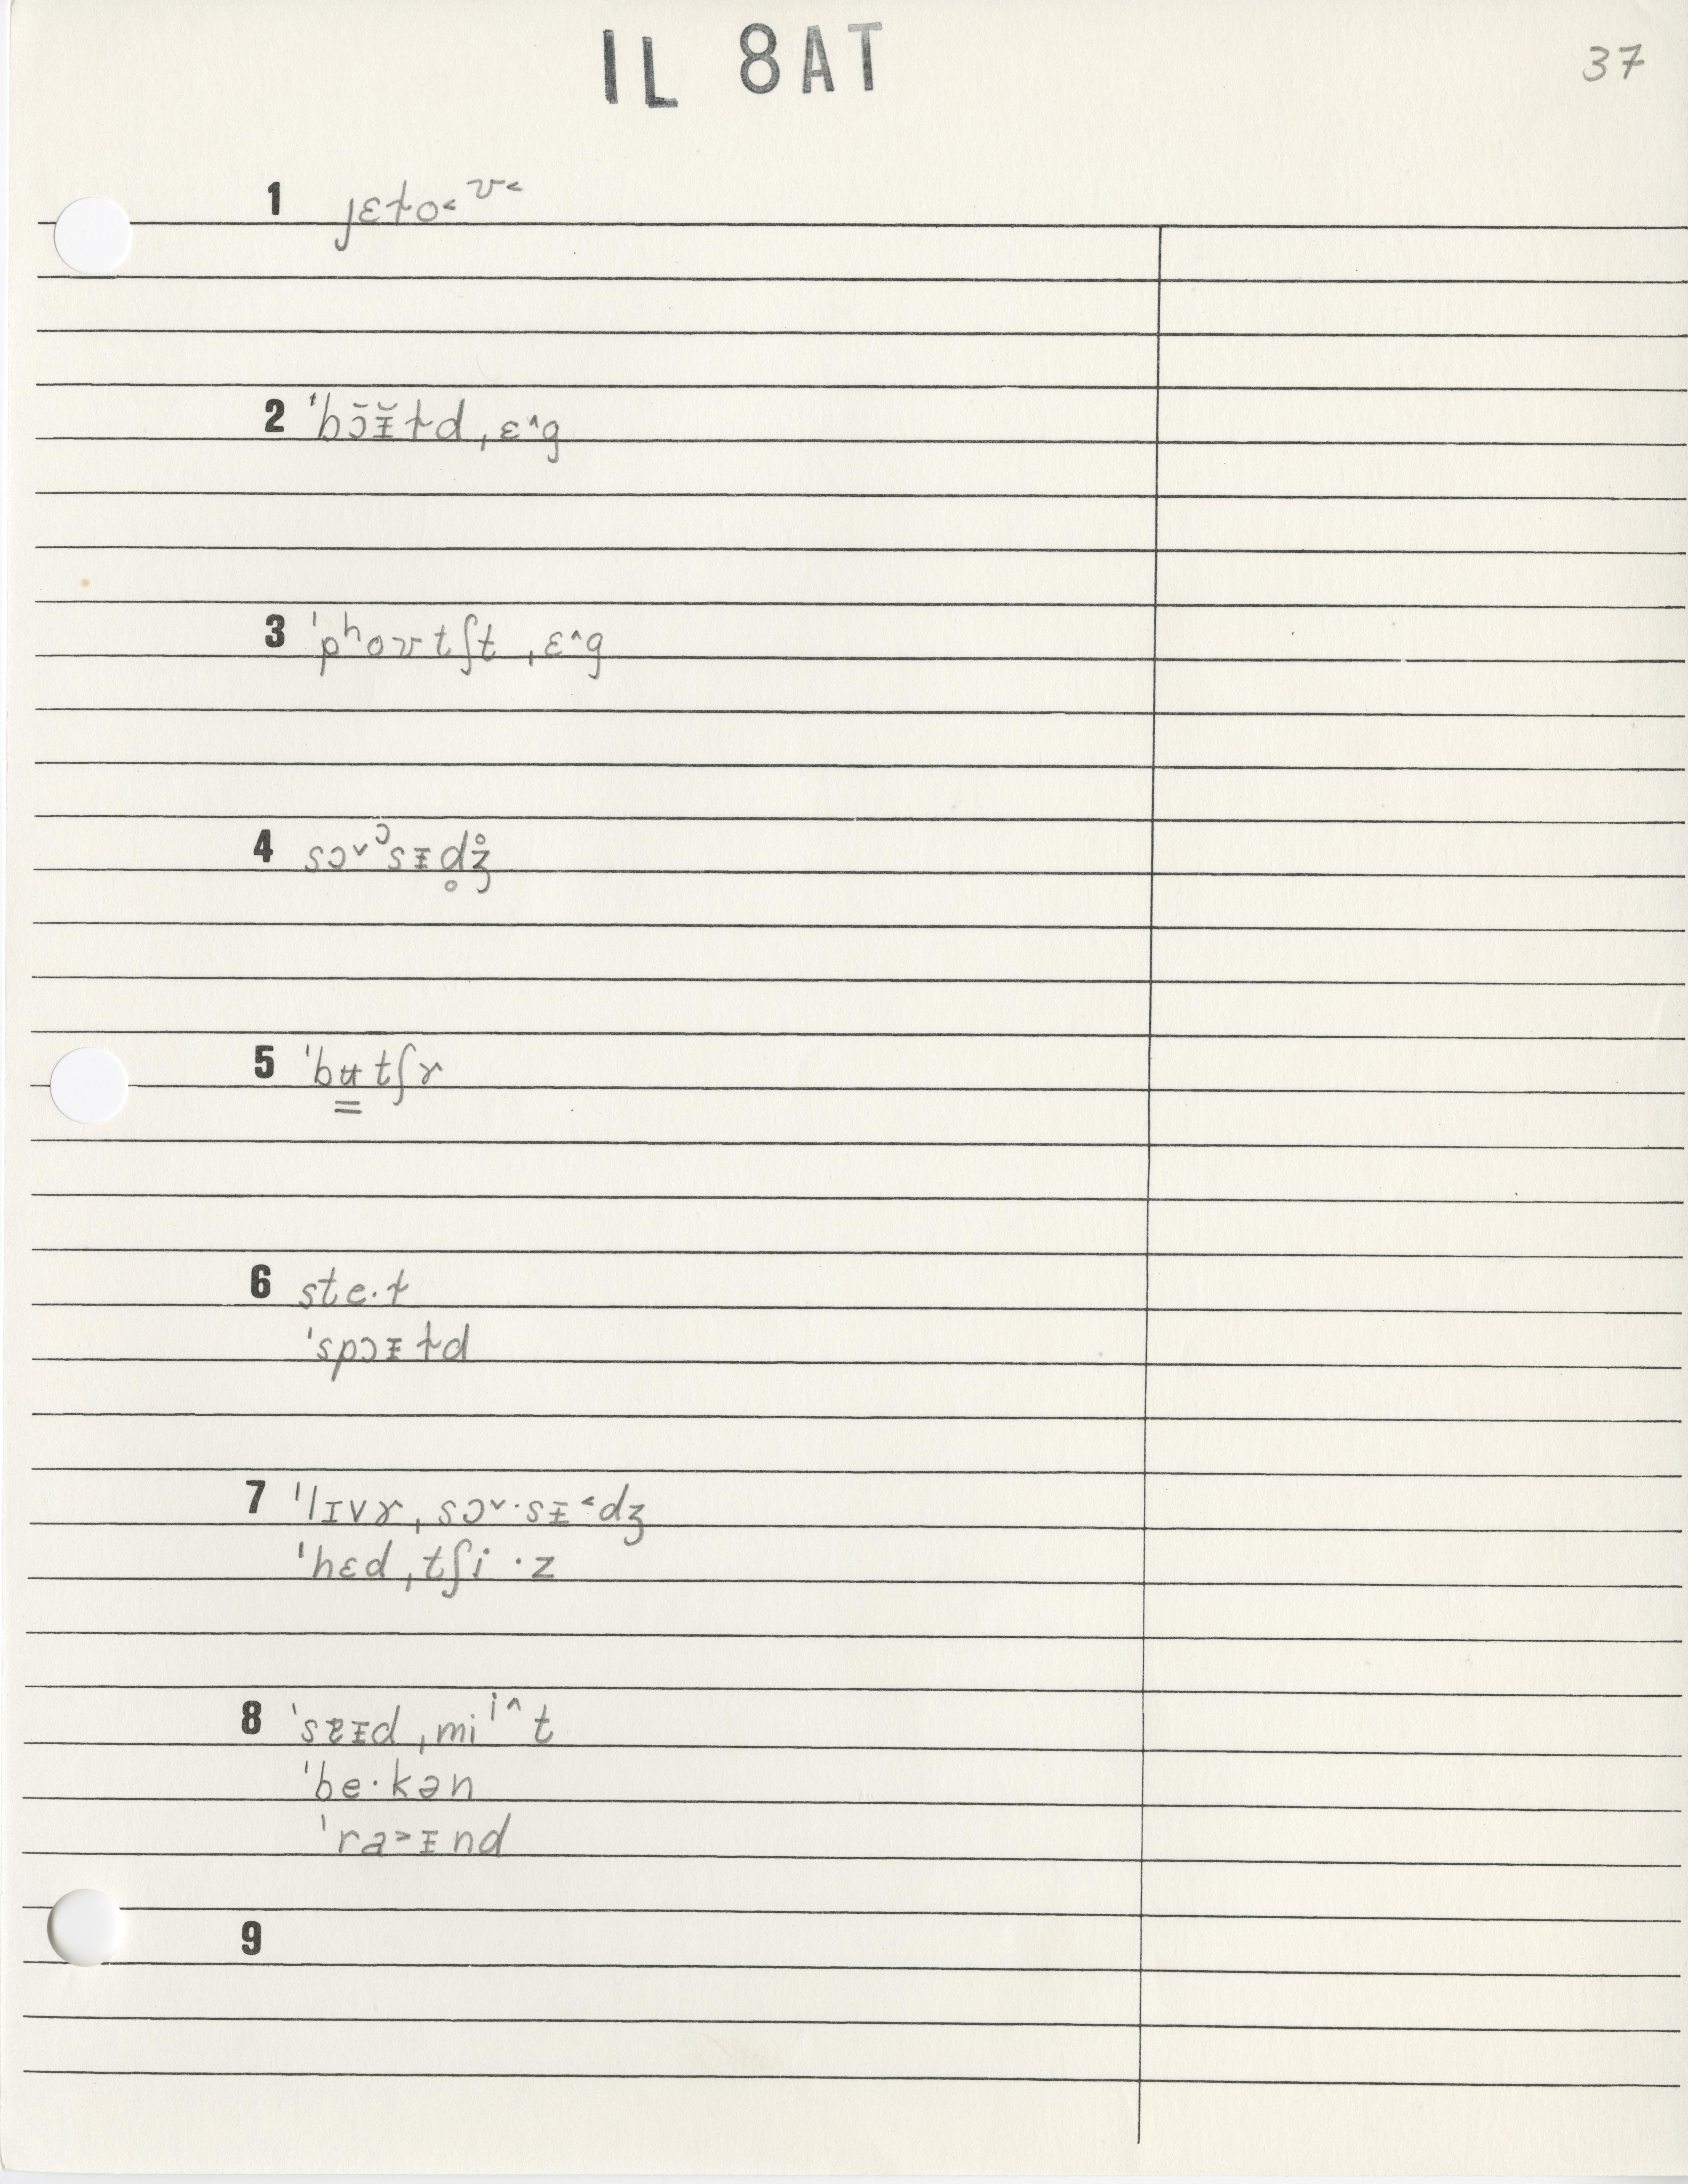 IL 8AT
37
1 jɛɫo˂ ᶷ˂
2 ˈbɔ̆ᵻ̆ɫd ˌɛ˄g
3 ˈpʰoʊtʃt ˌɛ˄g
4 sɔ˅ᵓsᵻd̥ʒ̊
5 ˈbʉ̳tʃɤ
6 ste·ɫ
ˈspɔᵻɫd
7 ˈlɪvɤ ˌsɔ˅·sᵻ˂dʒ
ˈhɛd ˌtʃi·z
8 ˌmiⁱ˄t
ˈbe·kən
ˈra˃ᵻnd
9